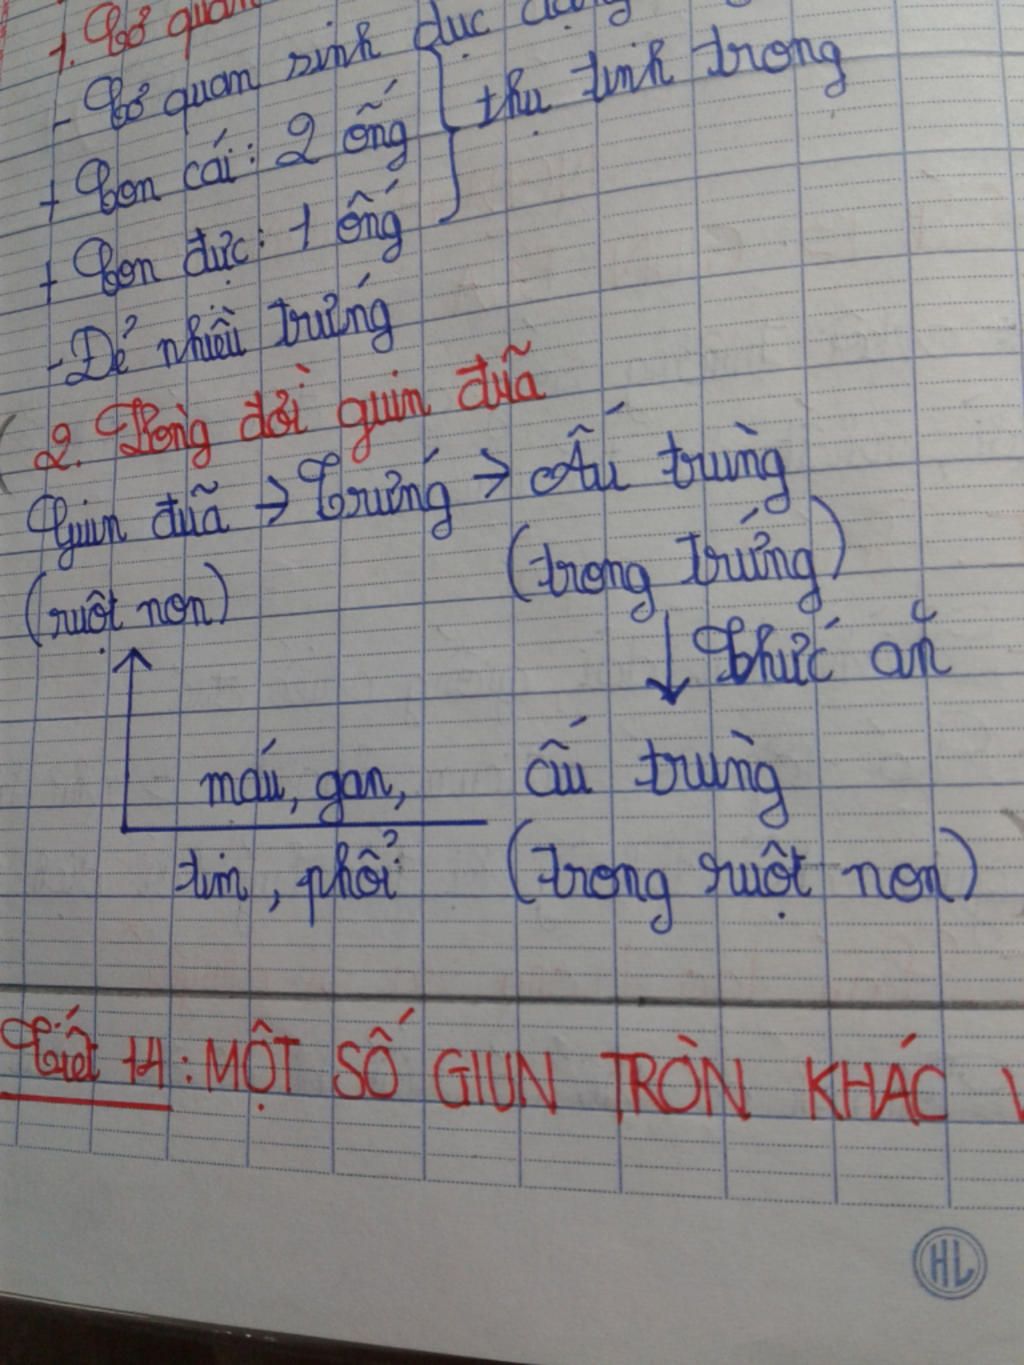 1. Cơ quan
- Cơ quan sinh dục dạng
+ Con cái: 2 ống
+ Con đực: 1 ống
thụ tinh trong
- Đẻ nhiều trứng
2. Vòng đời giun đũa
Giun đũa → Trứng → Ấu trùng
(ruột non)
(trong trứng)
↓ Thức ăn
máu, gan,
ấu trùng
tim, phổi
(trong ruột non)
Tiết 14: MỘT SỐ GIUN TRÒN KHÁC V
HL